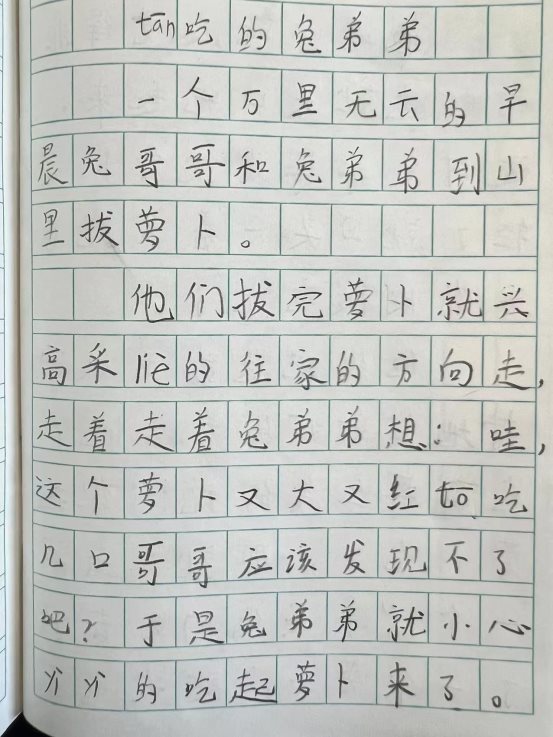 tān吃的兔弟弟
一个万里无云的早
晨兔哥哥和兔弟弟到山
里拔萝卜。
他们拔完萝卜就兴
高采liè的往家的方向走,
走着走着兔弟弟想：哇,
这个萝卜又大又红tō吃
几口哥哥应该发现不了
吧？于是兔弟弟就小心
丫丫的吃起萝卜来了。